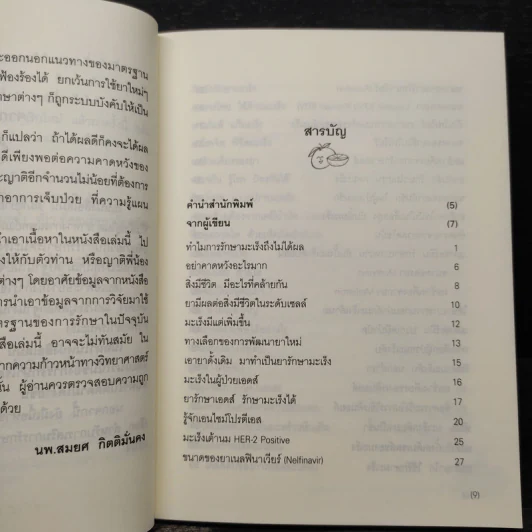 ะออกนอกแนวทางของมาตรฐาน
ฟ้องร้องได้ ยกเว้นการใช้ยาใหม่ๆ
ษาต่างๆ ก็ถูกระบบบังคับให้เป็น
ก็แปลว่า ถ้าได้ผลดีก็คงจะได้ผล
ดีเพียงพอต่อความคาดหวังของ
ะญาติอีกจำนวนไม่น้อยที่ต้องการ
าอาการเจ็บป่วย ที่ความรู้แผน
ำเอาเนื้อหาในหนังสือเล่มนี้ ไป
งให้กับตัวท่าน หรือญาติพี่น้อง
ต่างๆ โดยอาศัยข้อมูลจากหนังสือ
ารนำเอาข้อมูลจากการวิจัยมาใช้
ตรฐานของการรักษาในปัจจุบัน
สือเล่มนี้ อาจจะไม่ทันสมัย ใน
ากความก้าวหน้าทางวิทยาศาสตร์
ั้น ผู้อ่านควรตรวจสอบความถูก
ด้วย
นพ.สมยศ กิตติมั่นคง
สารบัญ
คำนำสำนักพิมพ์ (5)
จากผู้เขียน (7)
ทำไมการรักษามะเร็งถึงไม่ได้ผล 1
อย่าคาดหวังอะไรมาก 6
สิ่งมีชีวิต มีอะไรที่คล้ายกัน 8
ยามีผลต่อสิ่งมีชีวิตในระดับเซลล์ 10
มะเร็งมีแต่เพิ่มขึ้น 12
ทางเลือกของการพัฒนายาใหม่ 13
เอายาดั้งเดิม มาทำเป็นยารักษามะเร็ง 15
มะเร็งในผู้ป่วยเอดส์ 16
ยารักษาเอดส์ รักษามะเร็งได้ 17
รู้จักเอนไซม์โปรตีเอส 20
มะเร็งเต้านม HER-2 Positive 25
ขนาดของยาเนลฟินาเวียร์ (Nelfinavir) 27
(9)